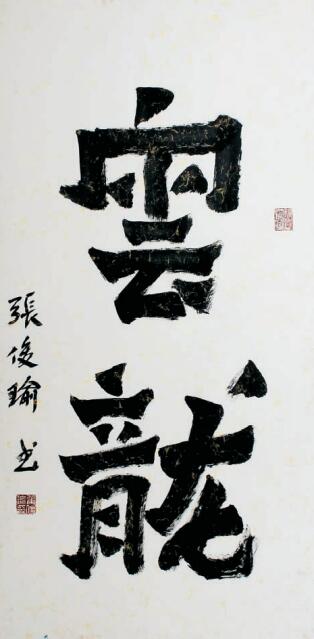 雲龍
張俊瑜书